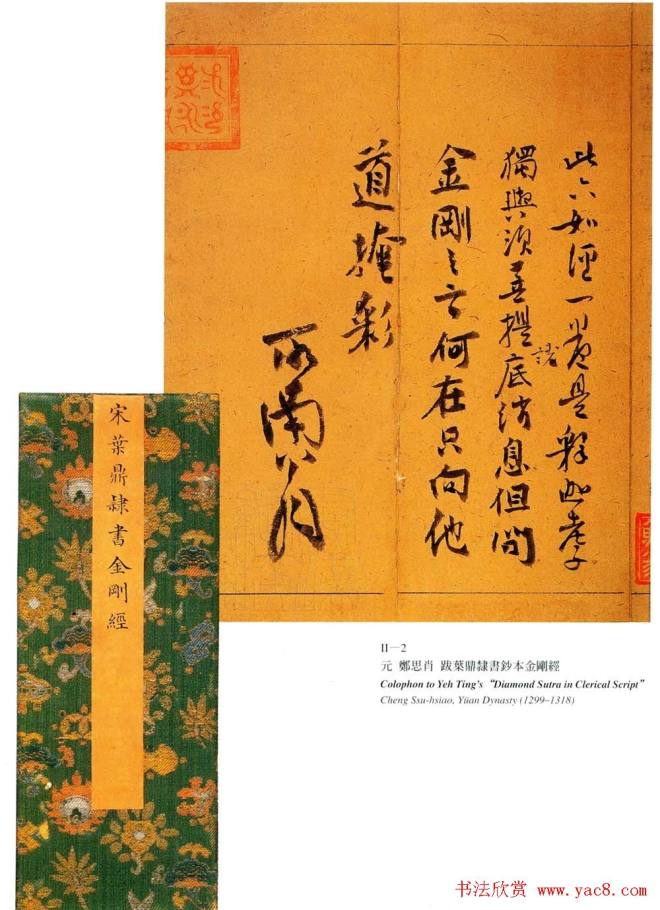 此六如經一卷是釋迦老子
獨與須菩提說底消息但問
金剛之言何在只向他
道掩彩
所南
宋葉鼎隸書金剛經
II—2
元 鄭思肖 跋葉鼎隸書鈔本金剛經
Colophon to Yeh Ting's “Diamond Sutra in Clerical Script”
Cheng Ssu-hsiao, Yüan Dynasty (1299–1318)
书法欣赏 www.yac8.com